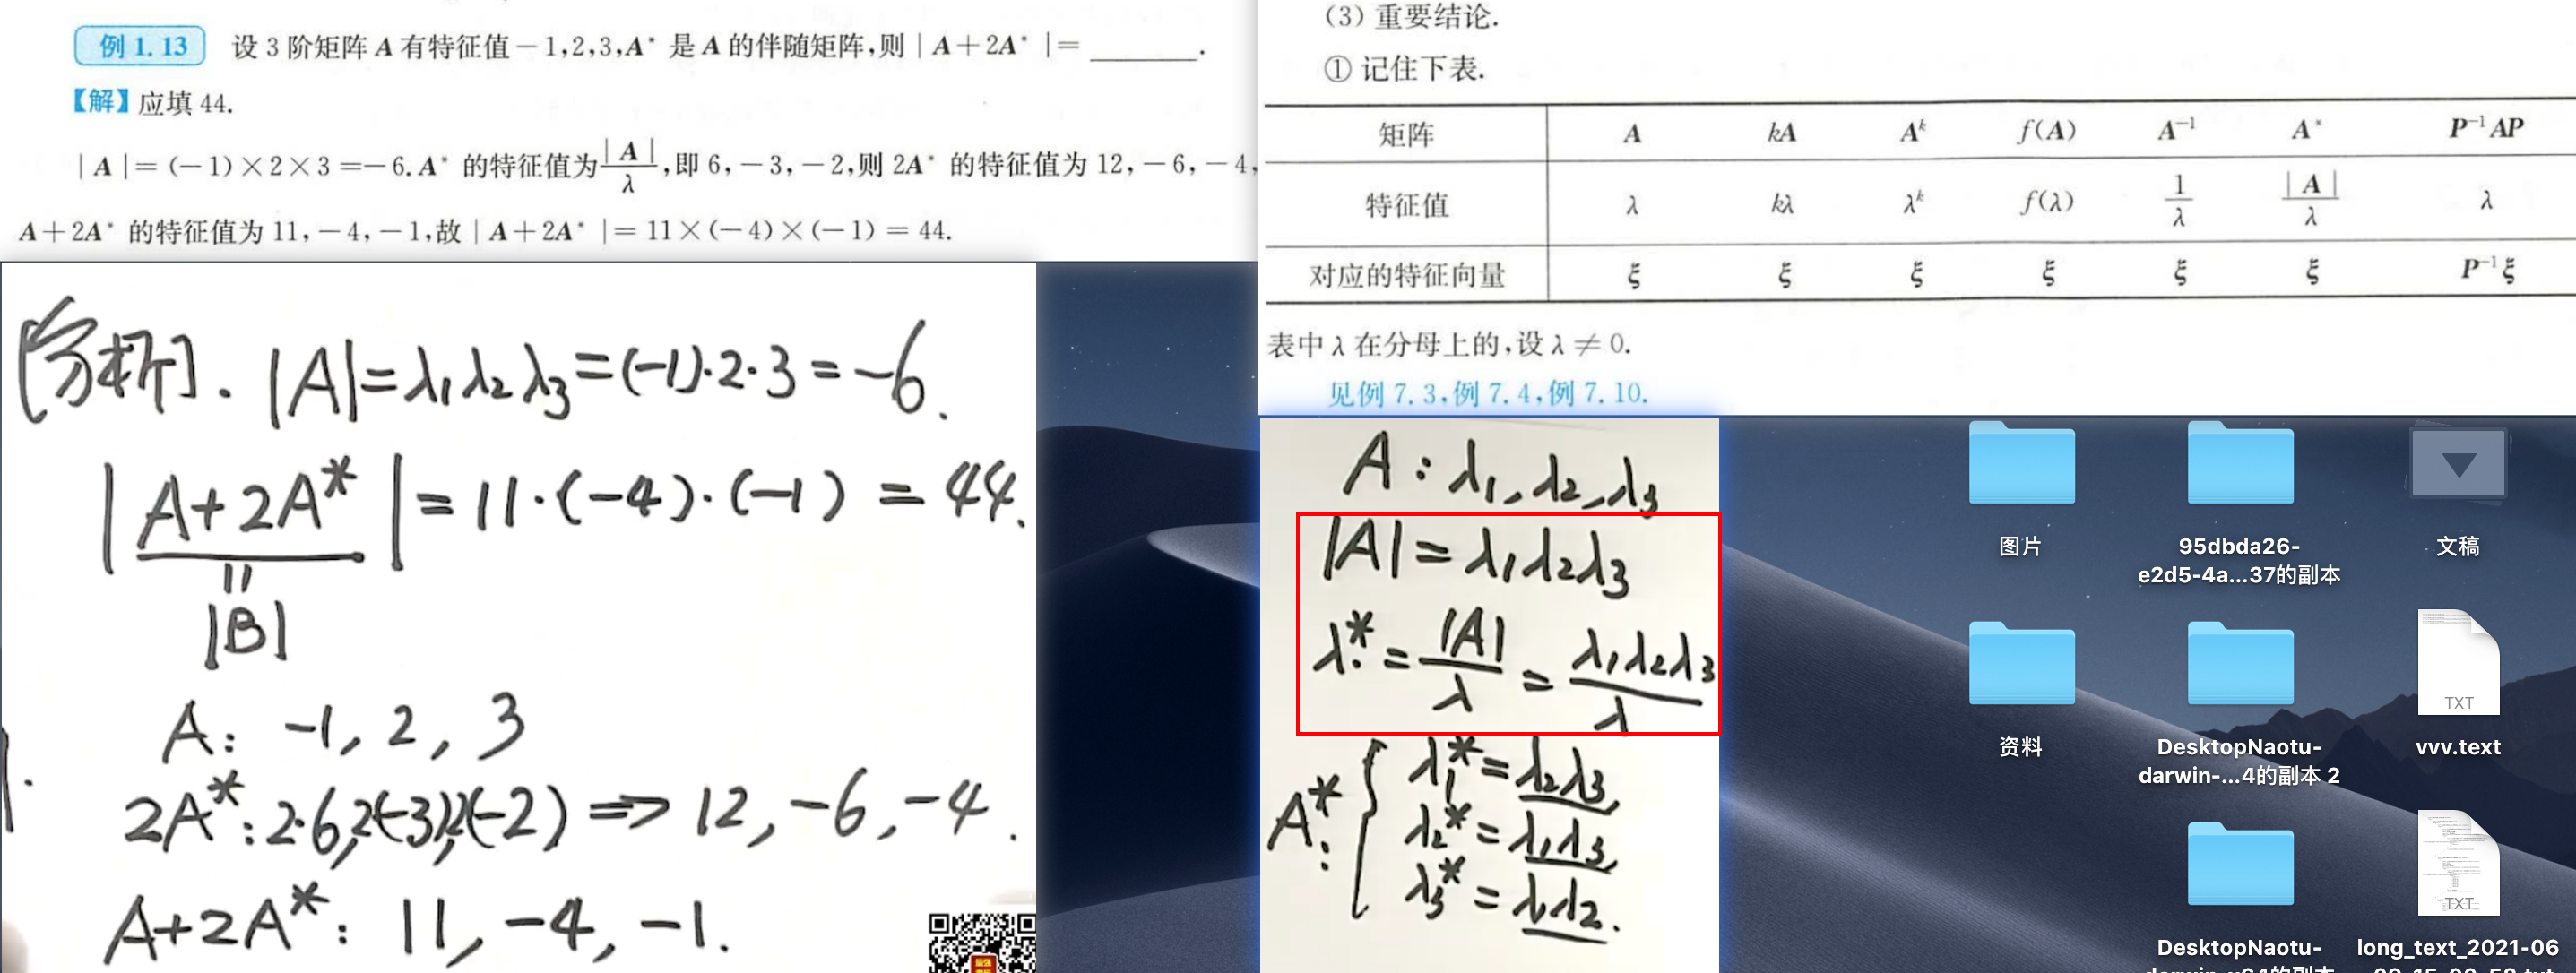 例 1.13 设 3 阶矩阵 A 有特征值 －1,2,3,A* 是 A 的伴随矩阵,则 | A＋2A* |＝ ________.
【解】应填 44.
| A |＝(－1)×2×3＝－6. A* 的特征值为 | A | / λ ,即 6,－3,－2,则 2A* 的特征值为 12,－6,－4,
A＋2A* 的特征值为 11,－4,－1,故 | A＋2A* |＝11×(－4)×(－1)＝44.
[分析]. |A|=λ₁λ₂λ₃=(-1)·2·3=-6.
|A+2A*|=11·(-4)·(-1)=44.
||
|B|
A: -1, 2, 3
2A*: 2·6, 2(-3), 2(-2) => 12, -6, -4.
A+2A*: 11, -4, -1.
(3) 重要结论.
① 记住下表.
矩阵 A kA Aᵏ f(A) A⁻¹ A* P⁻¹AP
特征值 λ kλ λᵏ f(λ) 1/λ | A |/λ λ
对应的特征向量 ξ ξ ξ ξ ξ ξ P⁻¹ξ
表中 λ 在分母上的,设 λ ≠ 0.
见例 7.3,例 7.4,例 7.10.
A: λ₁, λ₂, λ₃
|A|=λ₁λ₂λ₃
λ*=|A|/λ=λ₁λ₂λ₃/λ
A*: { λ₁*=λ₂λ₃,
λ₂*=λ₁λ₃,
λ₃*=λ₁λ₂.
图片
95dbda26-
e2d5-4a...37的副本
文稿
TXT
资料
DesktopNaotu-
darwin-...4的副本 2
vvv.text
TXT
DesktopNaotu-
long_text_2021-06